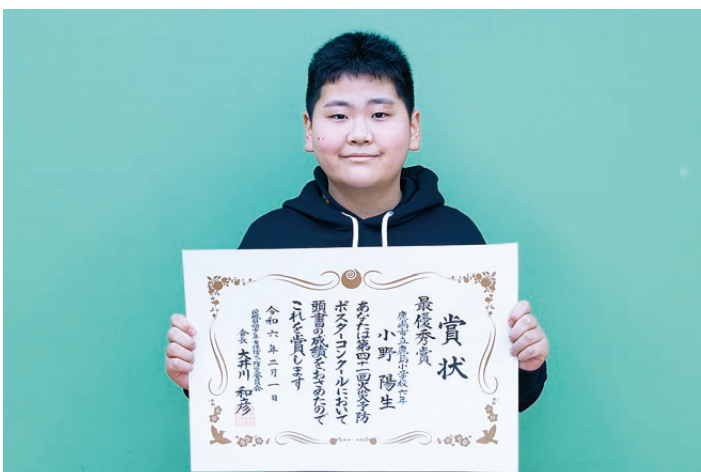 賞状
最優秀賞
鹿嶋市立鹿島小学校六年
小野 陽生
あなたは第四十一回火災予防
ポスターコンクールにおいて
頭書の成績をおさめたので
これを賞します
令和六年二月一日
会長 大井川 和彦